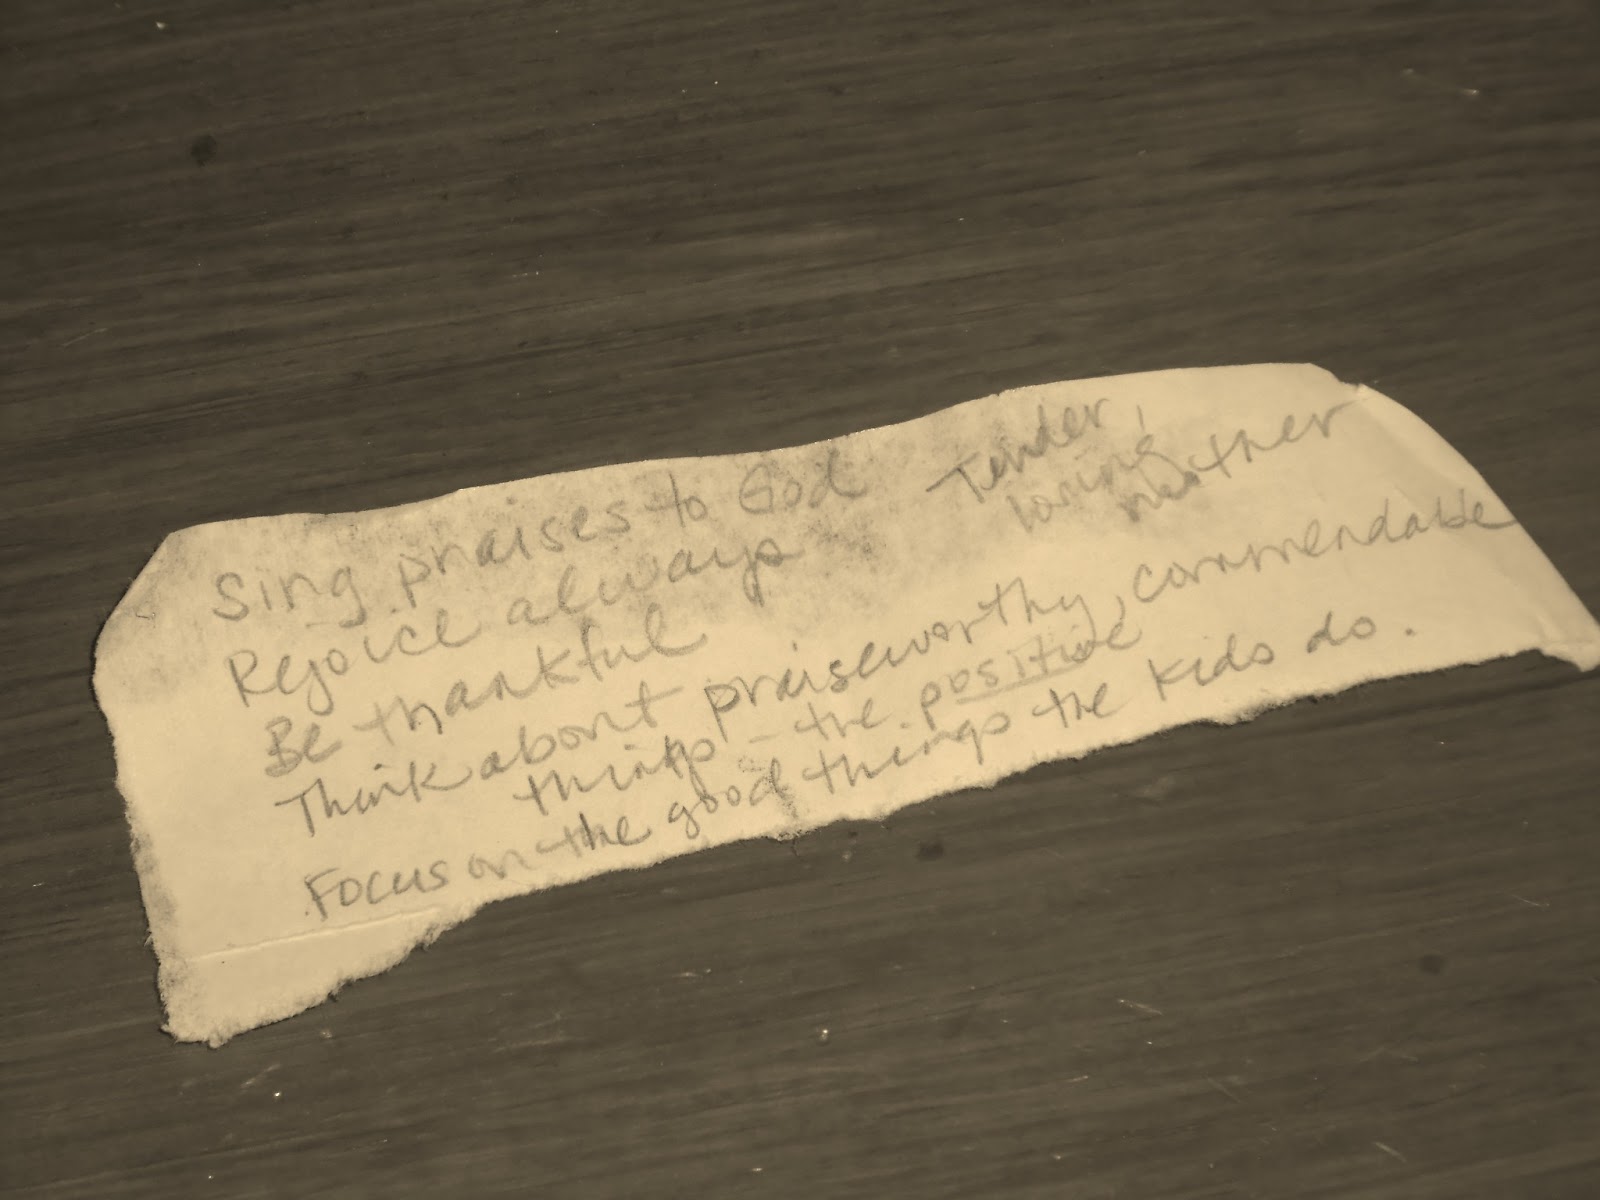 Sing praises to God
Rejoice always
Be thankful
Think about praiseworthy, commendable
things - the positive
Focus on the good things the kids do.
Tender,
loving
mother